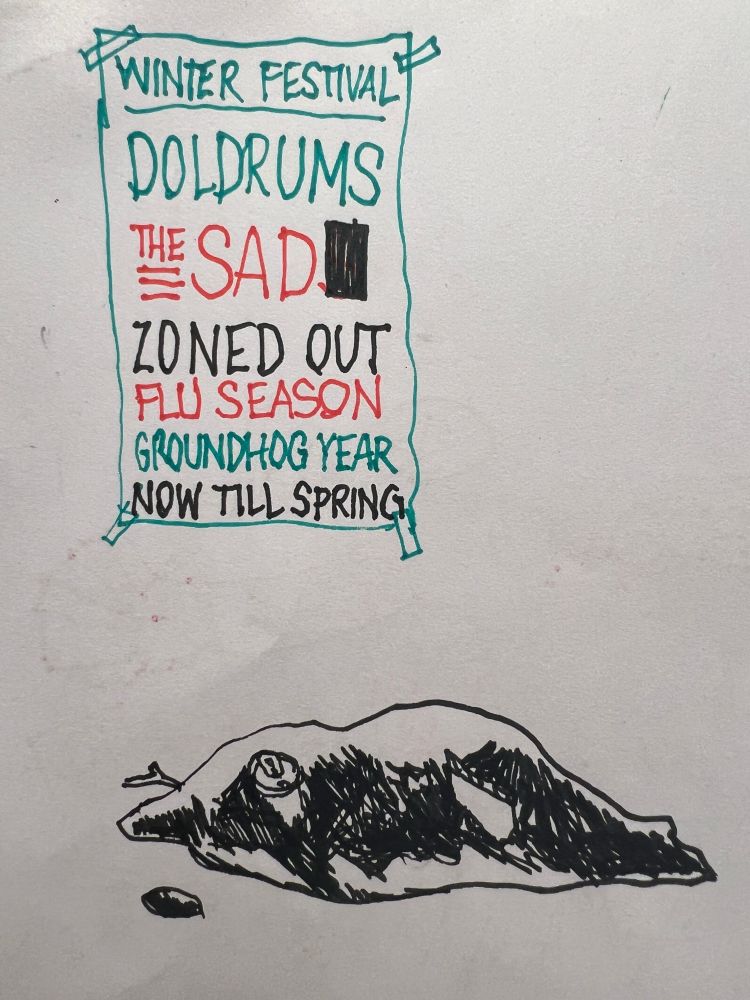 WINTER FESTIVAL
DOLDRUMS
THE SAD
ZONED OUT
FLU SEASON
GROUNDHOG YEAR
NOW TILL SPRING